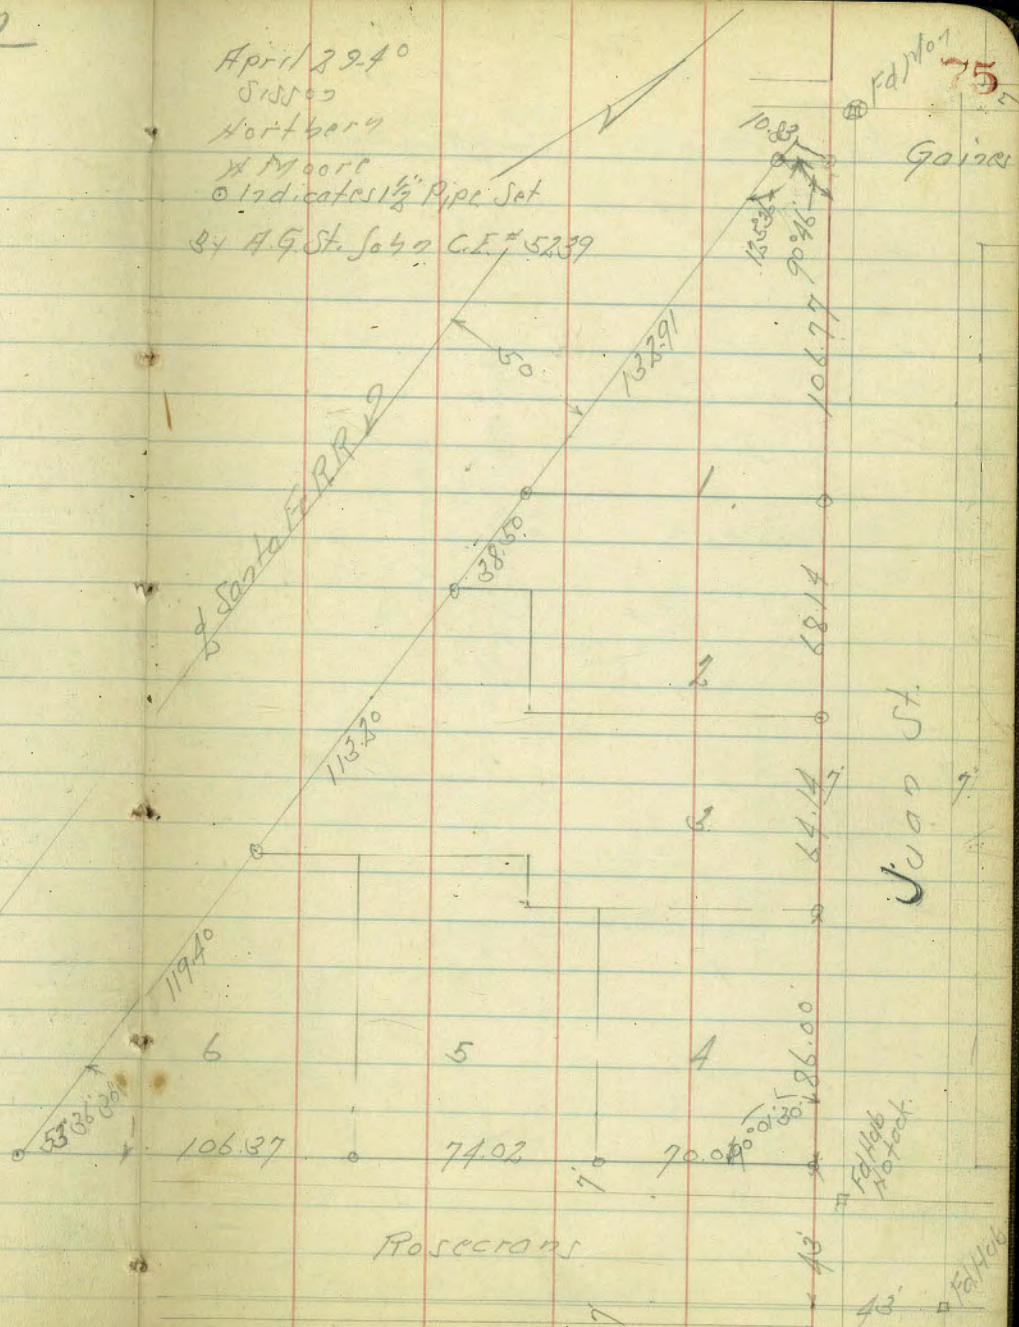 75
April 29-40
Sisson
Northern
W Moore
⊙ Indicates 1 1/2" Pipe Set
By A.G. St. John C.E. # 5239
Fd Mon
7
Gaines
10.83
90°46'
106.77
50
132.91
1
Santa Fe R R
38.50
68.14
2
113.20
3
64.14
7'
Juan St.
7'
119.40
6
5
4
86.00
53° 36' 30"
90° 01' 30"
106.37
74.02
70.09
7'
Fd Hub
No tack.
Rosecrans
43'
7'
43'
Fd Hub